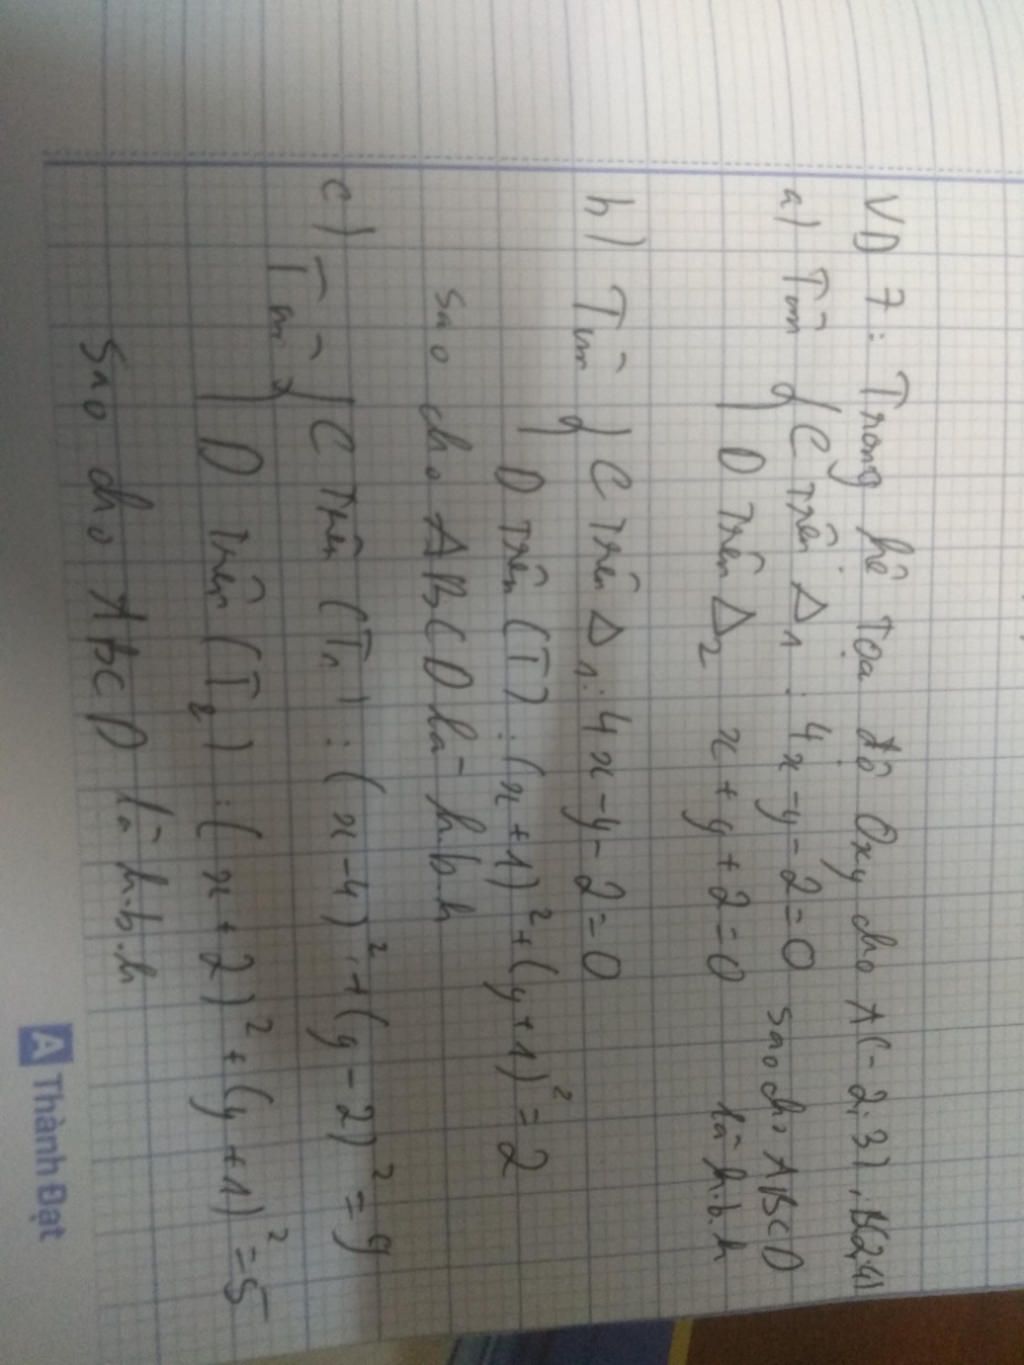 VD 7: Trong hệ tọa độ Oxy cho A(-2;3), B(2;4)
a) Tìm { C trên Δ1 : 4x-y-2=0 sao cho ABCD
D trên Δ2 x+y+2=0 là h.b.h
b) Tìm { C trên Δ1: 4x-y-2=0
D trên (T) : (x+1)²+(y+1)²=2
sao cho ABCD là h.b.h
c) Tìm { C trên (T1) : (x-4)²+(y-2)²=9
D trên (T2) : (x+2)²+(y+1)²=5
sao cho ABCD là h.b.h
Thành Đạt